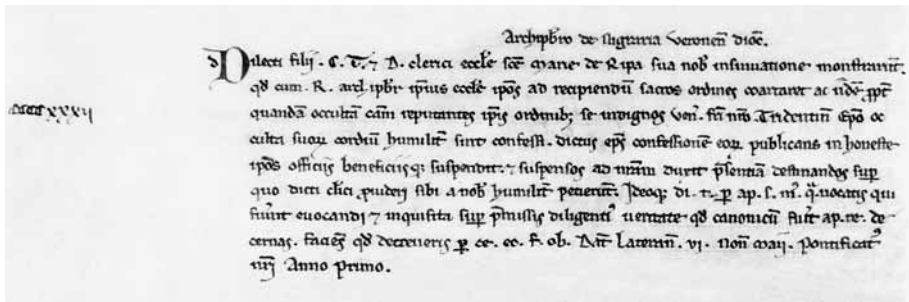 Archipbro de Sugraria Veronen̄ dioc̄.
Dilecti filij . C. T. ⁊ A. clerici eccl̄e sc̄e Marie de Ripa sua nob̄ insinuatione monstrarūt.
qd̄ cum . R. archipbr̄ ip̄ius eccl̄e ip̄os ad recipiendū sacros ordines coartaret ac iidē ꝓpt̄
quandā occultā cām reputantes ip̄is ordinib; se indignos ven̄. frī nr̄o Tridentin̄ Ep̄o oc
culta suoꝝ cordiū humilit̄ sunt confessi . dictus ep̄s confessionē eoꝝ publicans inhoneste
ip̄os officijs beneficijsq; suspendit . ⁊ suspensos ad nr̄am duxit p̄sentiā destinandos sup̄
quo dicti clic̄i ꝓuideri sibi a nob̄ humilit̄ petierūt . Ideoq; di . t . ꝑ ap . s . m̄ . q̄t̄ vocatis qui
fuerint euocandi ⁊ inquisita sup̄ p̄missis diligentiꝰ ueritate qd̄ canonicū fuit̄ ap . re . de
cernas . faciēs qd̄ decreueris ꝑ ce . ec . f̄ . ob . Dat̄ Lateran̄ . vi . Non̄ Maij . Pontificatꝰ
nr̄j Anno Primo .
xxxij